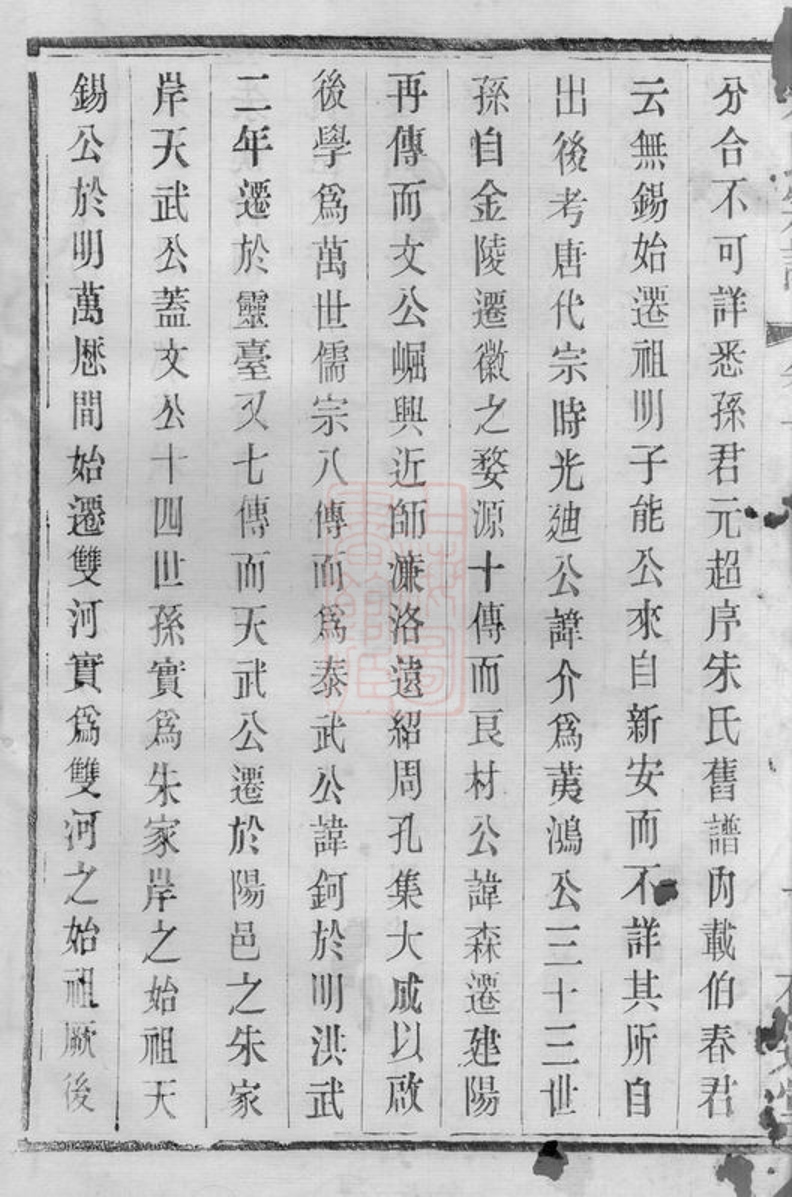 分合不可詳悉孫君元超序朱氏舊譜內載伯春君
云無錫始遷祖明子能公來自新安而不詳其所自
出後考唐代宗時光廸公諱介爲荑鴻公三十三世
孫自金陵遷徽之婺源十傳而良材公諱森遷建陽
再傳而文公崛興近師濂洛遠紹周孔集大成以啟
後學爲萬世儒宗八傳而爲泰武公諱鈳於明洪武
二年遷於靈臺又七傳而天武公遷於陽邑之朱家
岸天武公蓋文公十四世孫實爲朱家岸之始祖天
錫公於明萬厯間始遷雙河實爲雙河之始祖厥後